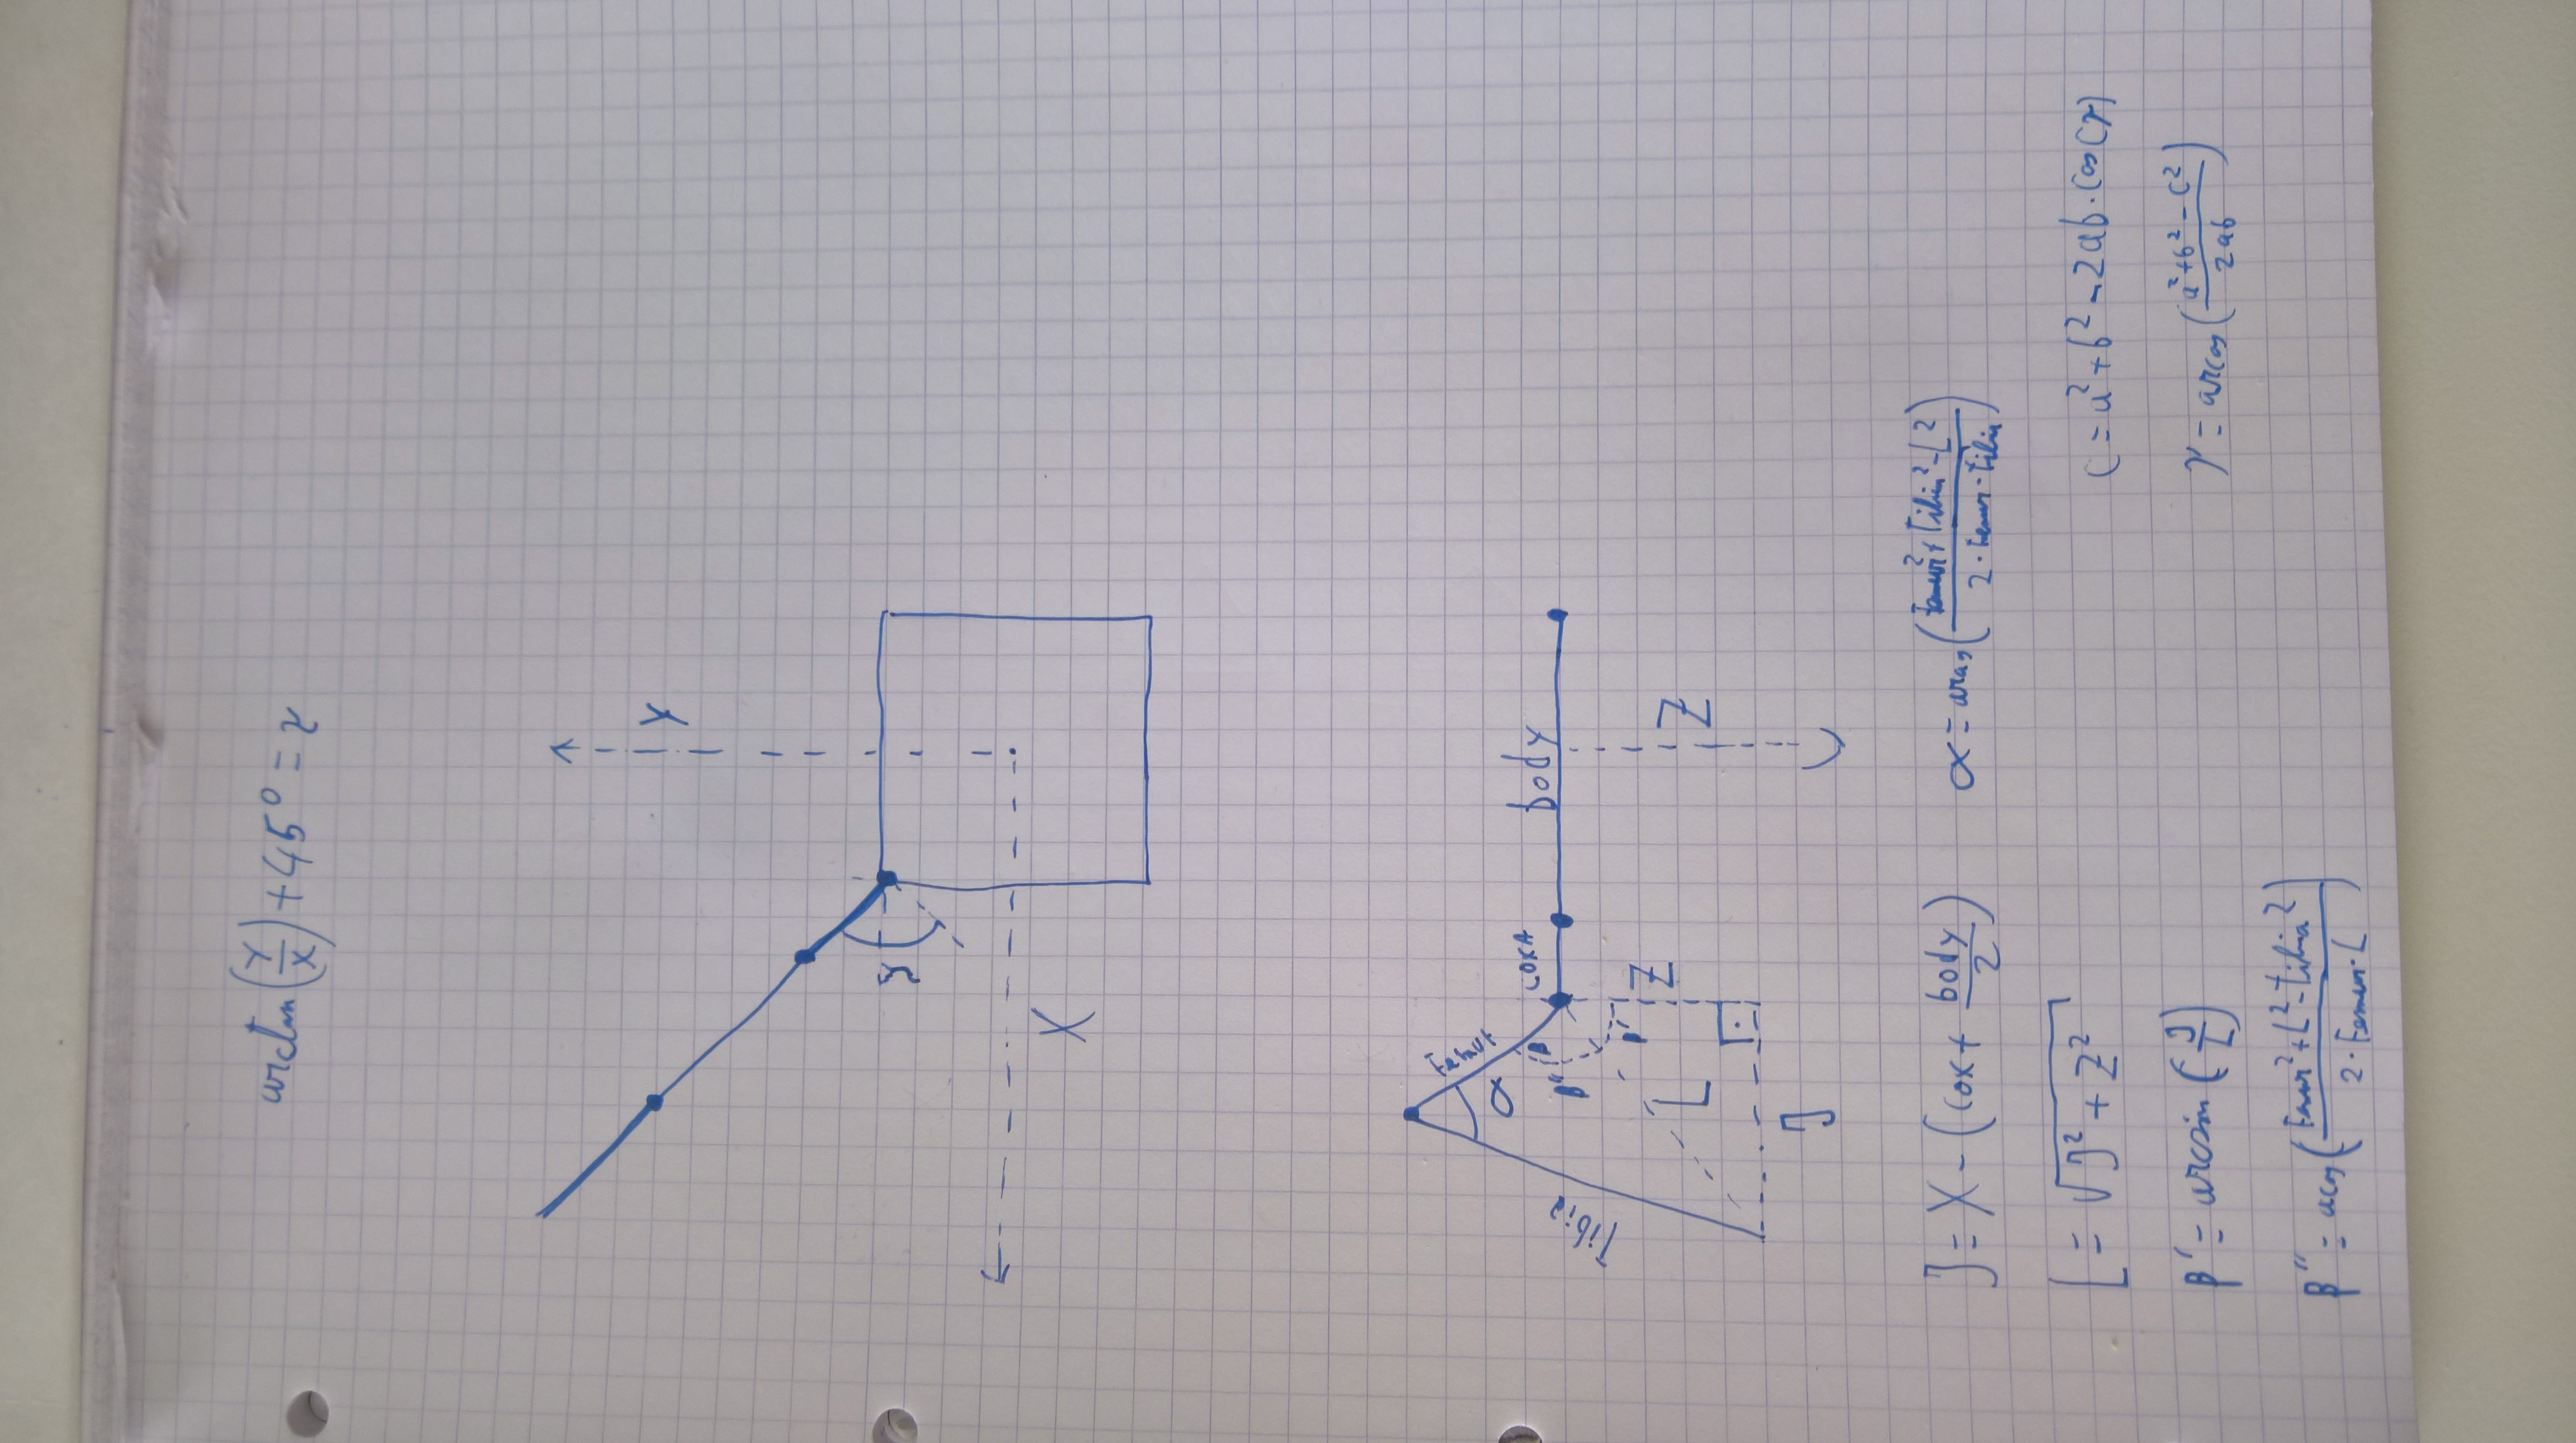 arctan(Y/X)+45°=γ
Y
γ
X
Femur
α
COXA
body
β
β"
Tibia
β'
Z
L
Z
J
J=X-(Cox+body/2)
α=arcos((Femur²+Tibia²-L²)/(2·Femur·Tibia))
L=√(J²+Z²)
C=a²+b²-2ab·cos(γ)
β'=arcsin(J/L)
γ=arcos((a²+b²-c²)/(2ab))
β"=acos((Femur²+L²-Tibia²)/(2·Femur·L))